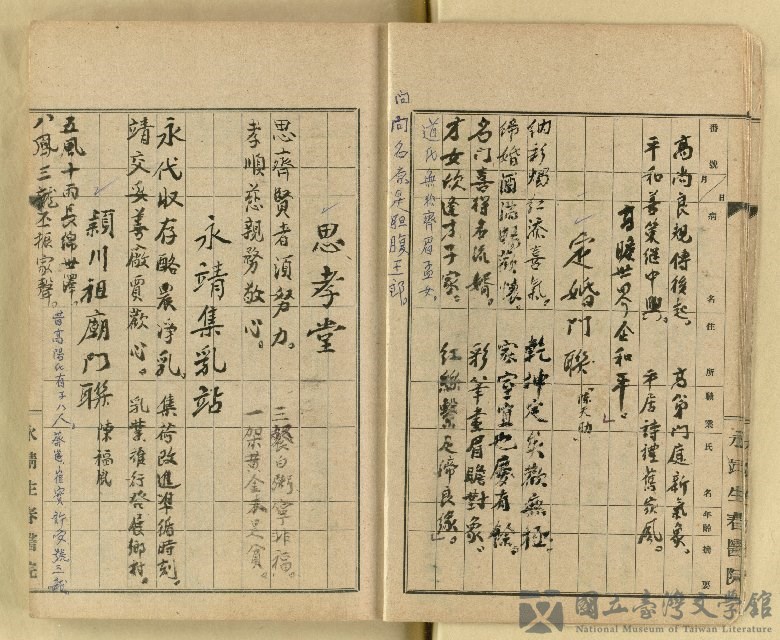 番號 月 日 病 名 住 所 職業 氏 名 年齡 摘要
高尚良規傳後起。 高第門庭新氣象。
平和善策繼中興。 平居詩禮舊家風。
高瞻世界企和平。
定婚門聯 陳天助
納彩燭紅添喜氣。 乾坤定矣歡無極。
締婚酒滿暢歡懷。 家室宜也慶有餘。
名門喜得名流婿。 彩筆畫眉瞻對象。
才女欣逢才子家。 紅絲繫足締良緣。
道氏無於齊眉孟女
問名 坦腹王郎。
永靖生春醫院
思孝堂
思齊賢者須努力。 三餐白粥寧非福。
孝順慈親務敬心。 一架黃金
永靖集乳站
永代收存酪農淨乳。 集荷改進準循時刻。
靖交妥善廠買歡心。 乳業進行發展鄉村。
穎川祖廟門聯 陳福成
五風十雨長綿世澤。
八鳳三龍丕振家聲。 昔高陽氏有子八人。
永靖生春醫院
國立臺灣文學館
National Museum of Taiwan Literature